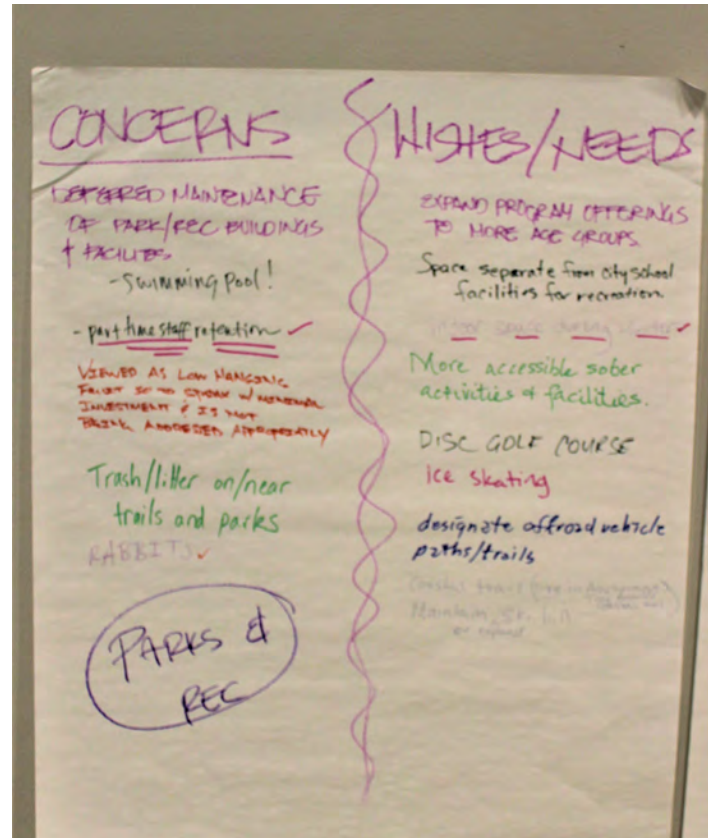 CONCERNS
DEFERRED MAINTENANCE
OF PARK/REC BUILDINGS
& FACILITES
- Swimming Pool!
- part time staff retention ✓
VIEWED AS LOW HANGING
FRUIT SO TO SPEAK W/ MINIMAL
INVESTMENT & IS NOT
BEING ADDRESSED APPROPRIATLY
Trash/litter on/near
trails and parks
RABBITS ✓
PARKS &
REC
WISHES/NEEDS
EXPAND PROGRAM OFFERINGS
TO MORE AGE GROUPS
Space separate from city school
facilities for recreation
indoor space during winter ✓
More accessible sober
activities & facilities.
DISC GOLF COURSE
Ice Skating
designate offroad vehicle
paths/trails
trail
Maintain
or expand